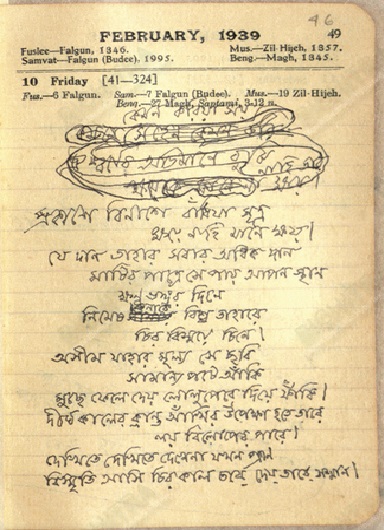 46
FEBRUARY, 1939 49
Fuslee—Falgun, 1346. Mus.—Zil-Hijeh, 1357.
Samvat—Falgun (Budee). 1995. Beng.—Magh, 1345.
10 Friday [41—324]
Fus.—6 Falgun. Sam—7 Falgun (Budee). Mus.—19 Zil-Hijeh.
Beng.—27 Magh, Saptami, 3-12 n.
কেমন করিয়া
অভিমানে
নাহি
প্রকাশে বিনাশে বাঁধিয়া সূত্র
ক্ষয়ে নাহি মানে ক্ষয়।
যে দান তাহার সবার অধিক দান
মাটির পাত্রে সে পায় আপন স্থান
ক্ষণ দিনে
নিমেষ কিনারে বিশ্ব তাহারে
চির বিস্ময়ে চিনে।
অসীম যাহার মূল্য সে ছবি
সামান্য পটে আঁকি
মুছে ফেলে দেয় লোলুপেরে দিয়ে ফাঁকি।
দীর্ঘকালের ক্লান্ত আঁখির উপেক্ষা হতে তারে
লয় বিলোপের পারে।
দেখিতে দেখিতে দেখে না যখন প্রাণ
বিস্মৃতি আসি চিরকাল দেয় তারে সম্মান।